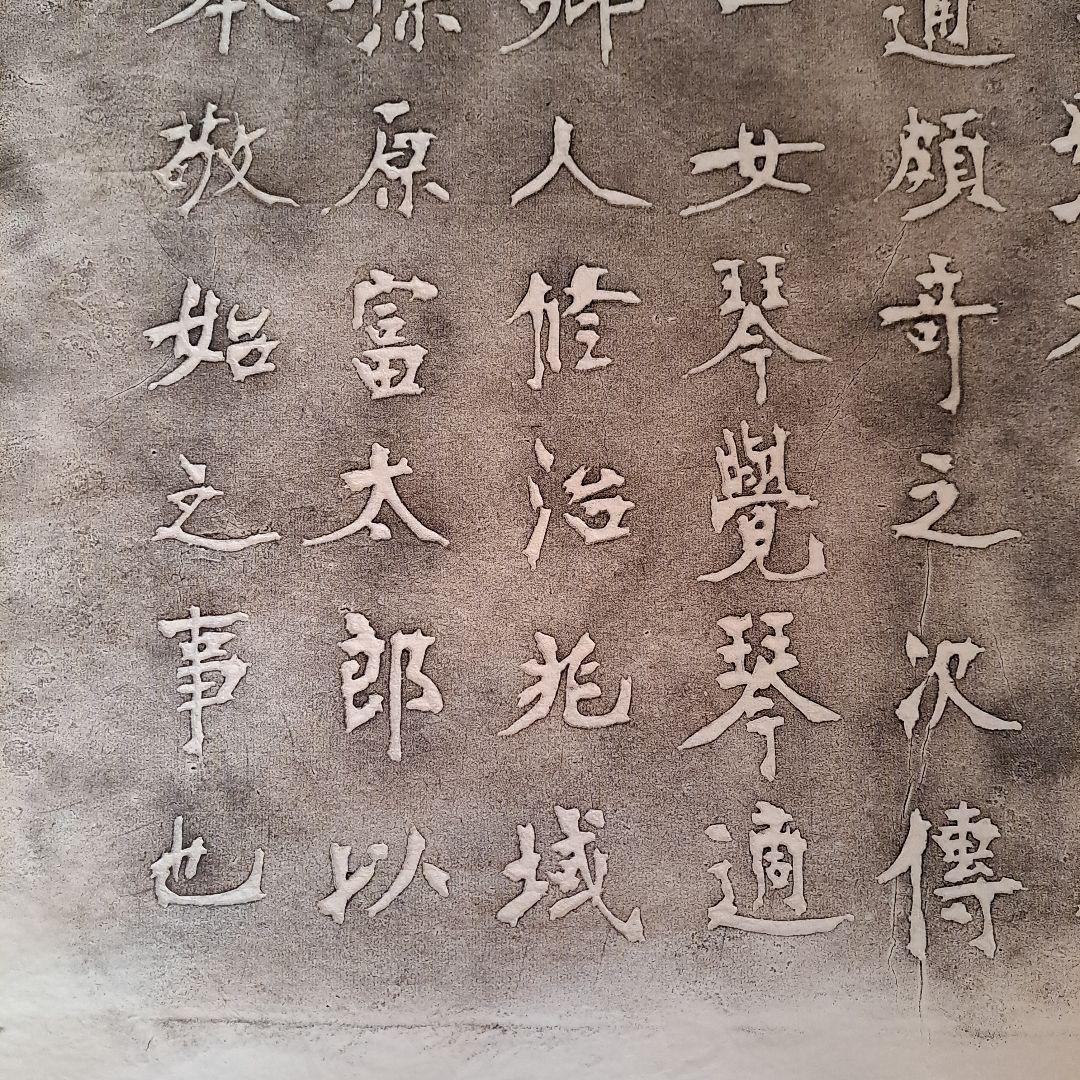 適頗奇之次傳
女琴覺琴適
人修治兆域
孫原富太郎以
本敬始之事也